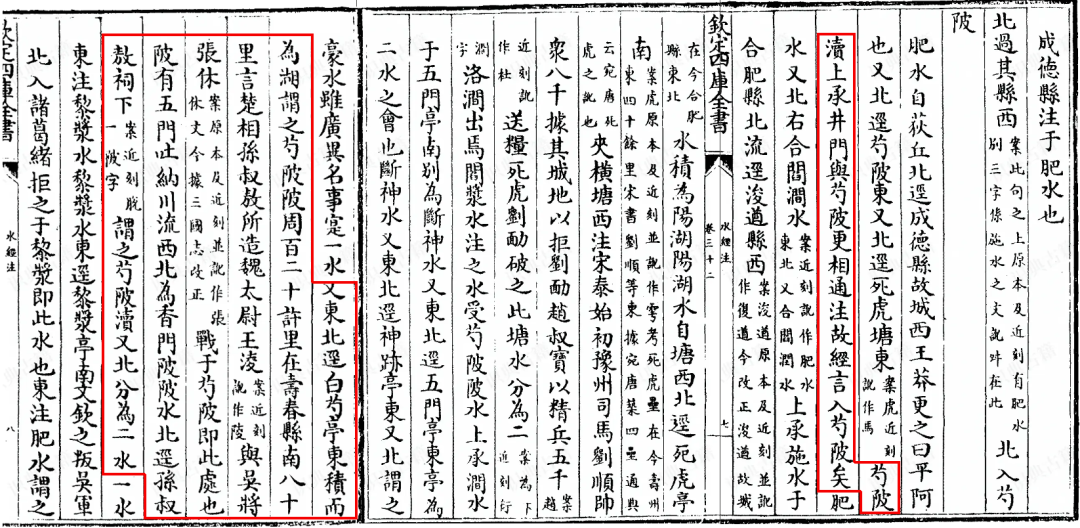 成德縣注于肥水也
北過其縣西案此句之上原本及近刻有肥水別三字係施水之文訛舛在此北入芍
陂
肥水自荻丘北逕成德縣故城西王莽更之曰平阿
也又北逕芍陂東又北逕死虎塘東案虎近刻訛作馬芍陂
瀆上承井門與芍陂更相通注故經言入芍陂矣肥
水又北右合閻澗水案近刻訛作肥水東北又合閻潤水上承施水于
合肥縣北流逕浚遒縣西案浚遒原本及近刻並訛作復道今改正浚遒故城
欽定四庫全書
水經注
卷三十二
七
在今合肥縣東北水積為陽湖陽湖水自塘西北逕死虎亭
南案虎原本及近刻並訛作雩考死虎壘在今壽州東四十餘里宋書劉順等東據宛唐築四壘通典
云宛唐死虎之訛也夾橫塘西注宋泰始初豫州司馬劉順帥
眾八千據其城地以拒劉勔趙叔寶以精兵五千案趙
近刻訛作杜送糧死虎劉勔破之此塘水分為二案為下近刻衍
澗字洛澗出焉閻漿水注之水受芍陂陂水上承澗水
于五門亭南別為斷神水又東北逕五門亭東亭為
二水之會也斷神水又東北逕神跡亭東又北謂之
豪水雖廣異名事寔一水又東北逕白芍亭東積而
為湖謂之芍陂陂周百二十許里在壽春縣南八十
里言楚相孫叔敖所造魏太尉王淩案近刻訛作陵與吳將
張休案原本及近刻並訛作張休文今據三國志改正戰于芍陂即此處也
陂有五門吐納川流西北為香門陂陂水北逕孫叔
敖祠下案近刻脫一陂字謂之芍陂瀆又北分為二水一水
東注黎漿水黎漿水東逕黎漿亭南文欽之叛吳軍
北入諸葛緒拒之于黎漿即此水也東注肥水謂之
欽定四庫全書
水經注
八